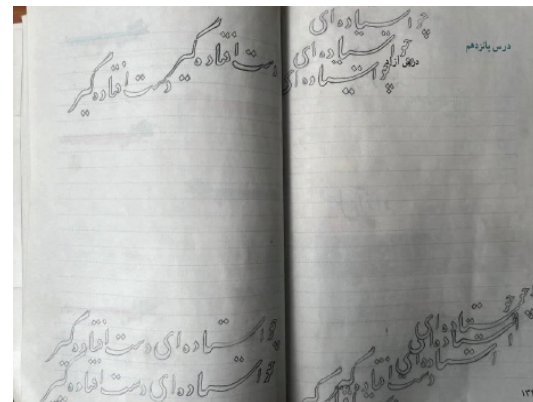 درس پانزدهم
چو استاده‌ای
چو استاده‌ای
درس آزاد
چو استاده‌ای
دست افتاده گیر
دست افتاده گیر
چو استاده‌ای دست افتاده گیر
چو استاده‌ای دست افتاده گیر
چو استاده‌ای
دست افتاده گیر